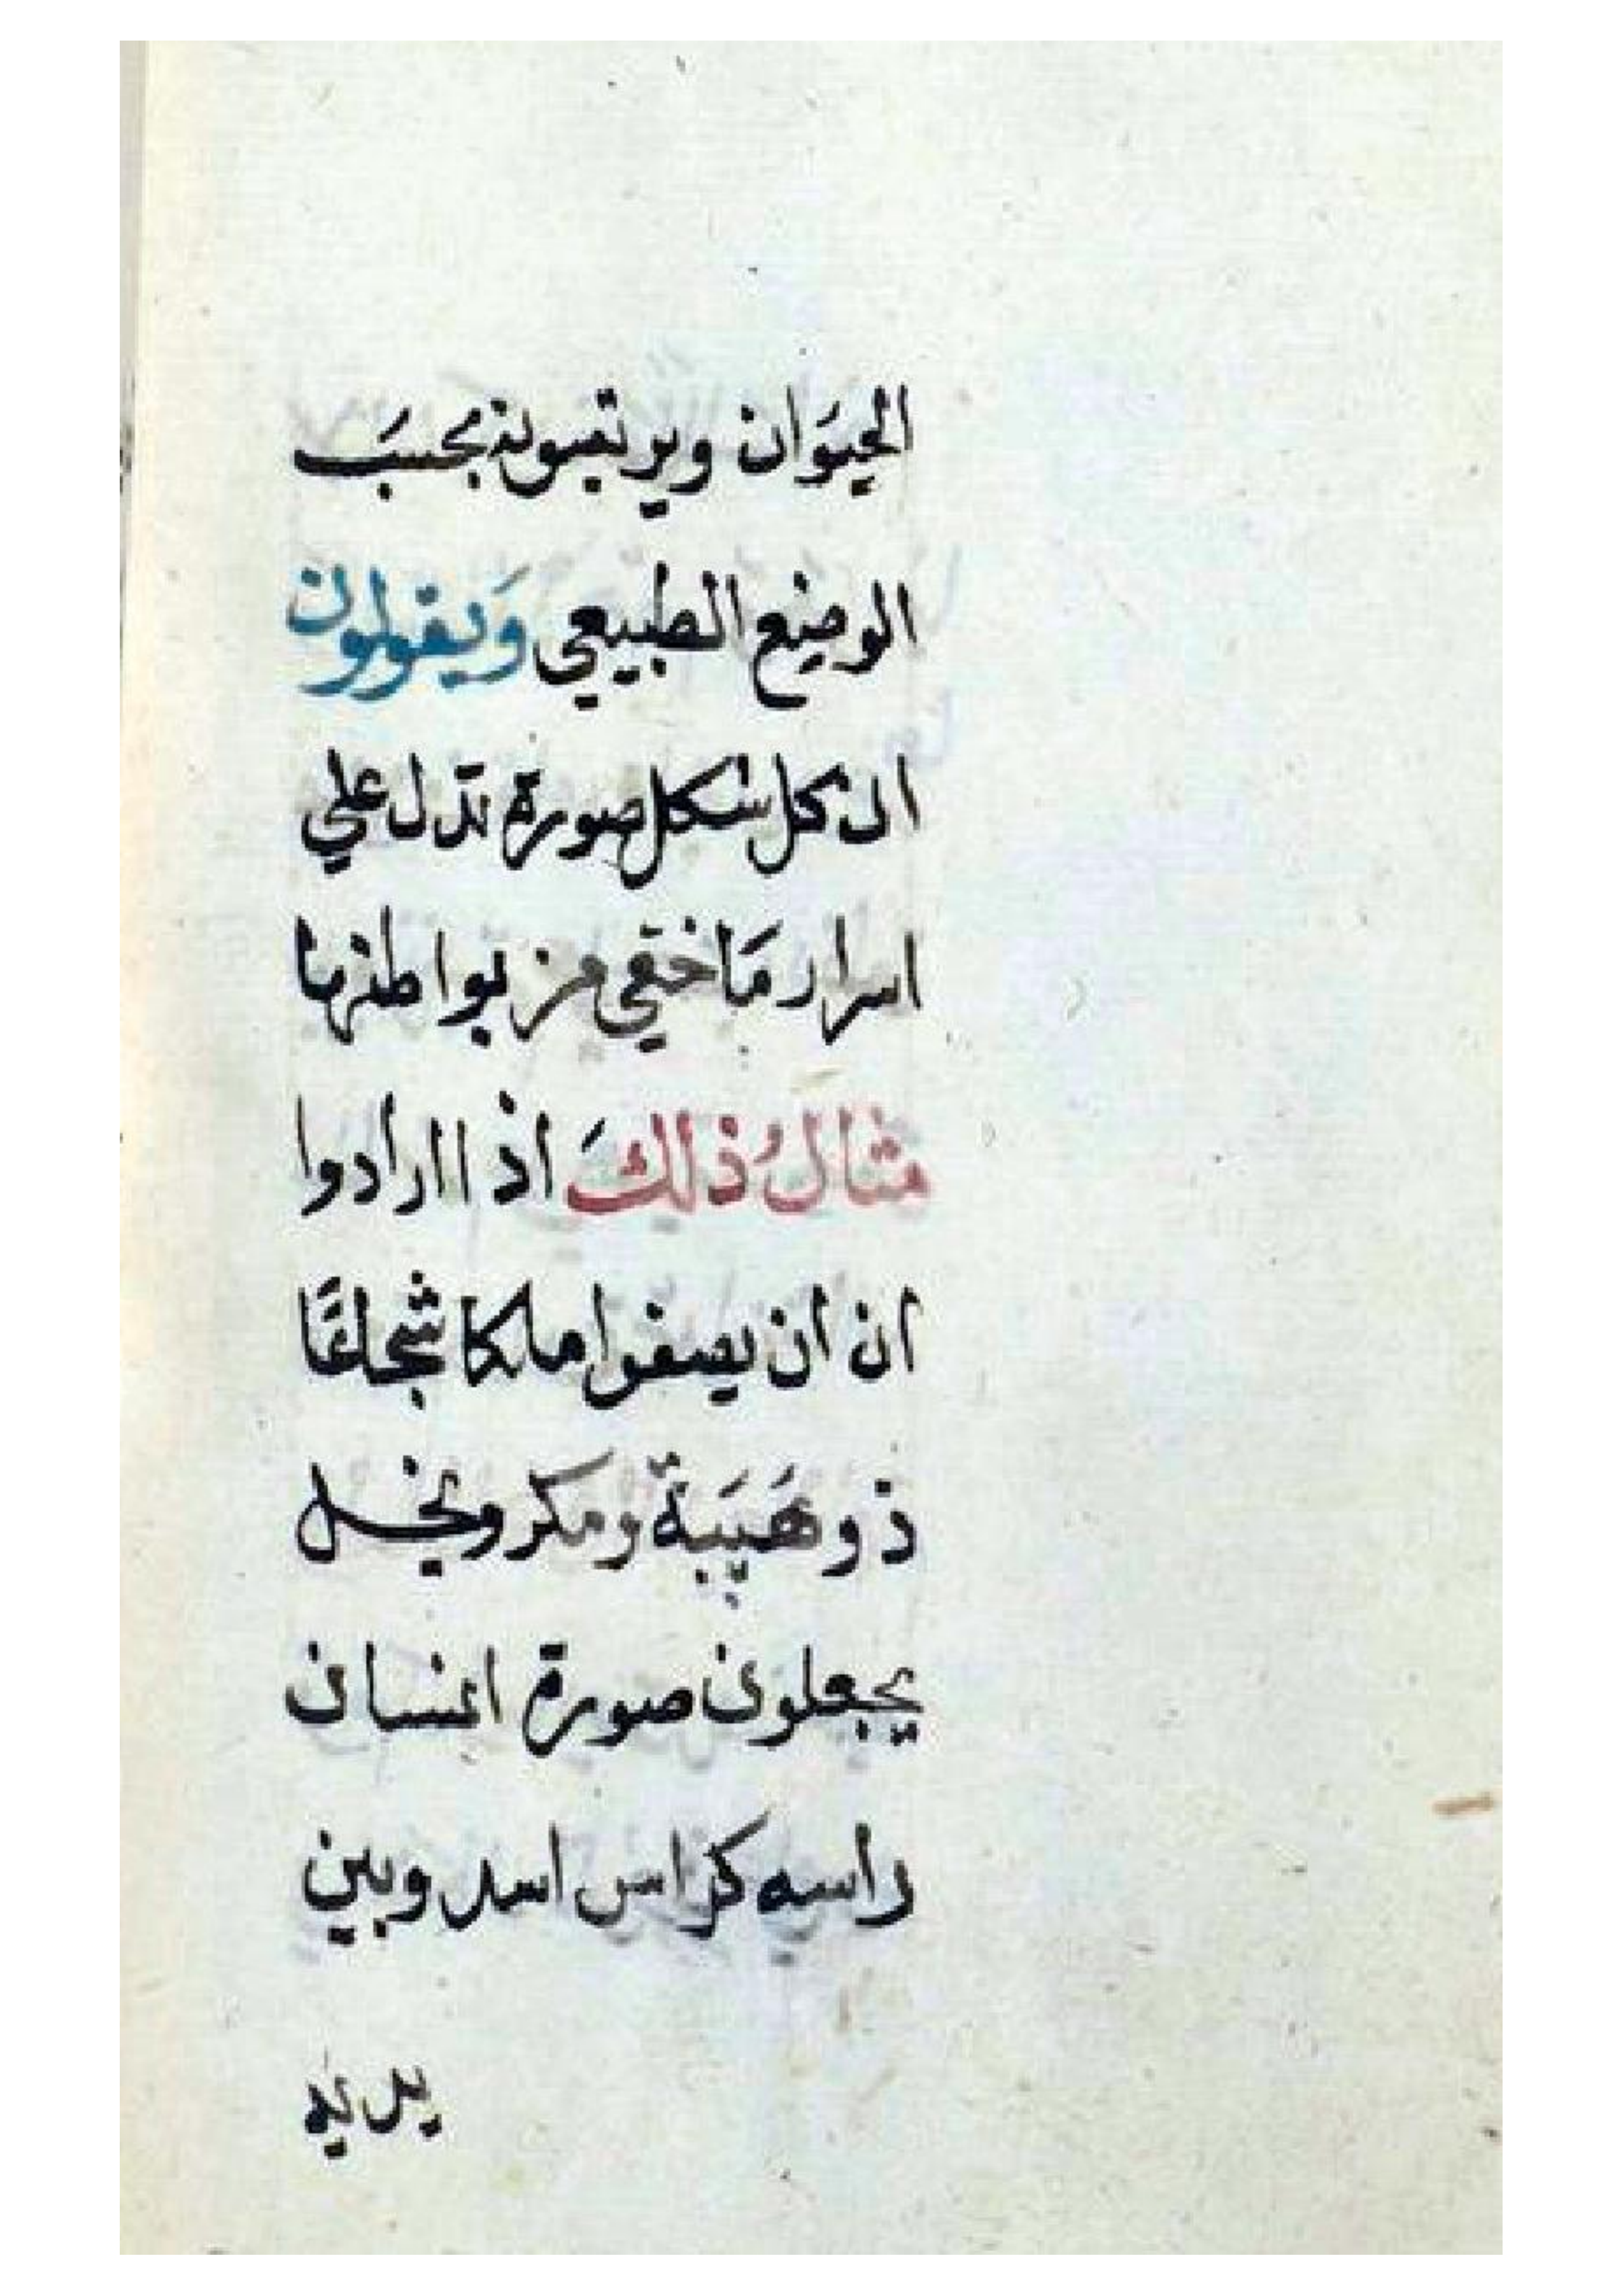 الحيَوَان ويرتبونه بحسبَ
الوضع الطبيعي وَيقولون
ان كل شكل صورة تدل علي
اسرار مَا خفي من بواطنها
مثالُ ذلكَ اذا ارادوا
ان ان يصفوا ملكا شجاعًا
ذو هَيَبَة ومكر وبخل
يجعلون صورة انسان
راسه كراس اسد وبين
يديه